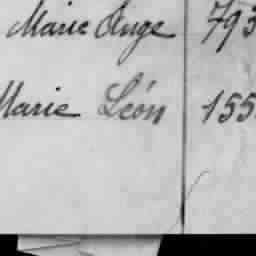 Marie Ange 793
Marie Léon 155